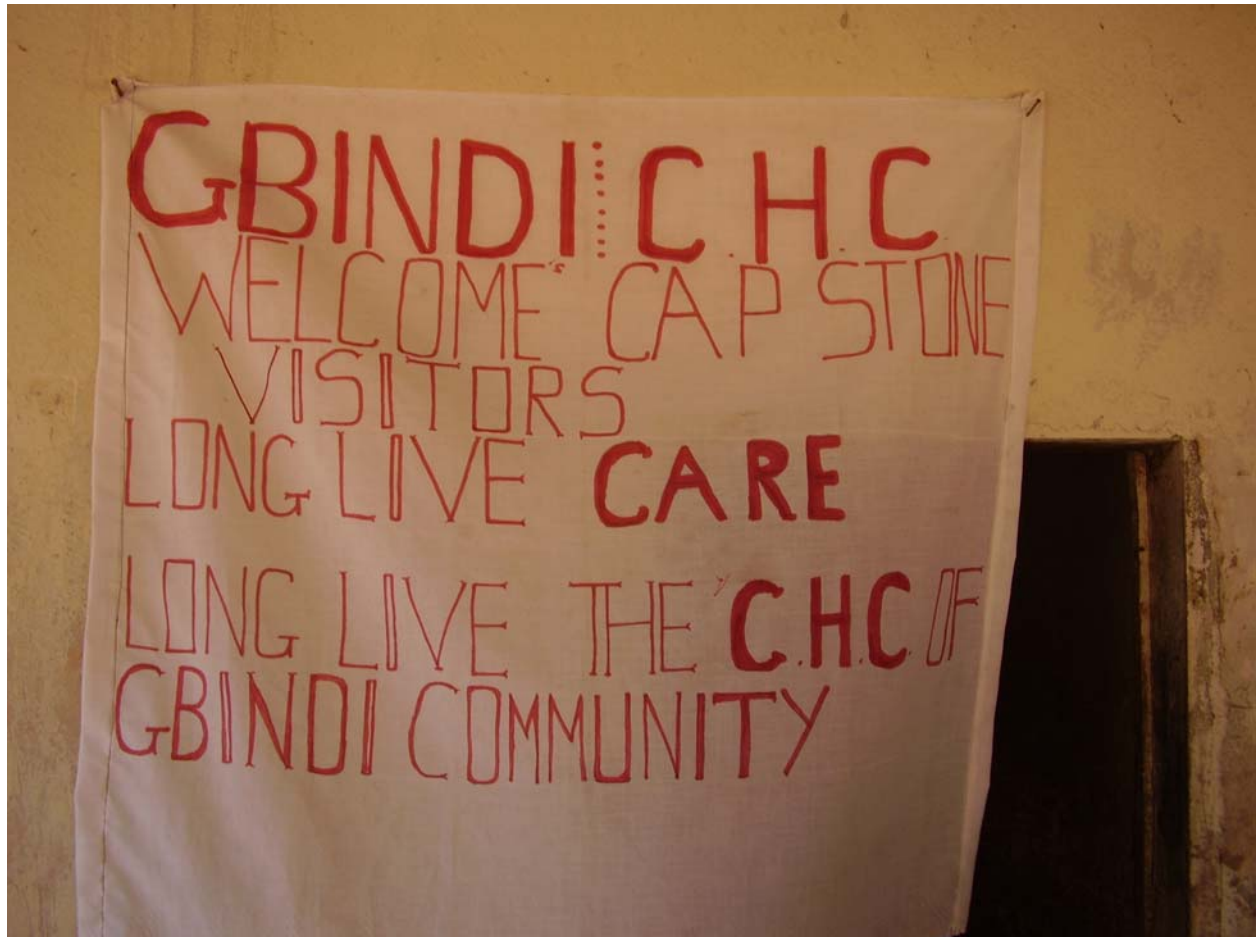 GBINDI: C.H.C.
WELCOME'S CAP STONE
VISITORS
LONG LIVE CARE
LONG LIVE THE "C.H.C. OF
GBINDI COMMUNITY